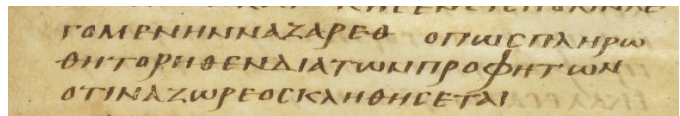 ΓΟΜΕΝΗΝΝΑΖΑΡΕΘ ΟΠΩΣΠΛΗΡΩ
ΘΗΤΟΡΗΘΕΝΔΙΑΤΩΝΠΡΟΦΗΤΩΝ
ΟΤΙΝΑΖΩΡΕΟΣΚΛΗΘΗΣΕΤΑΙ